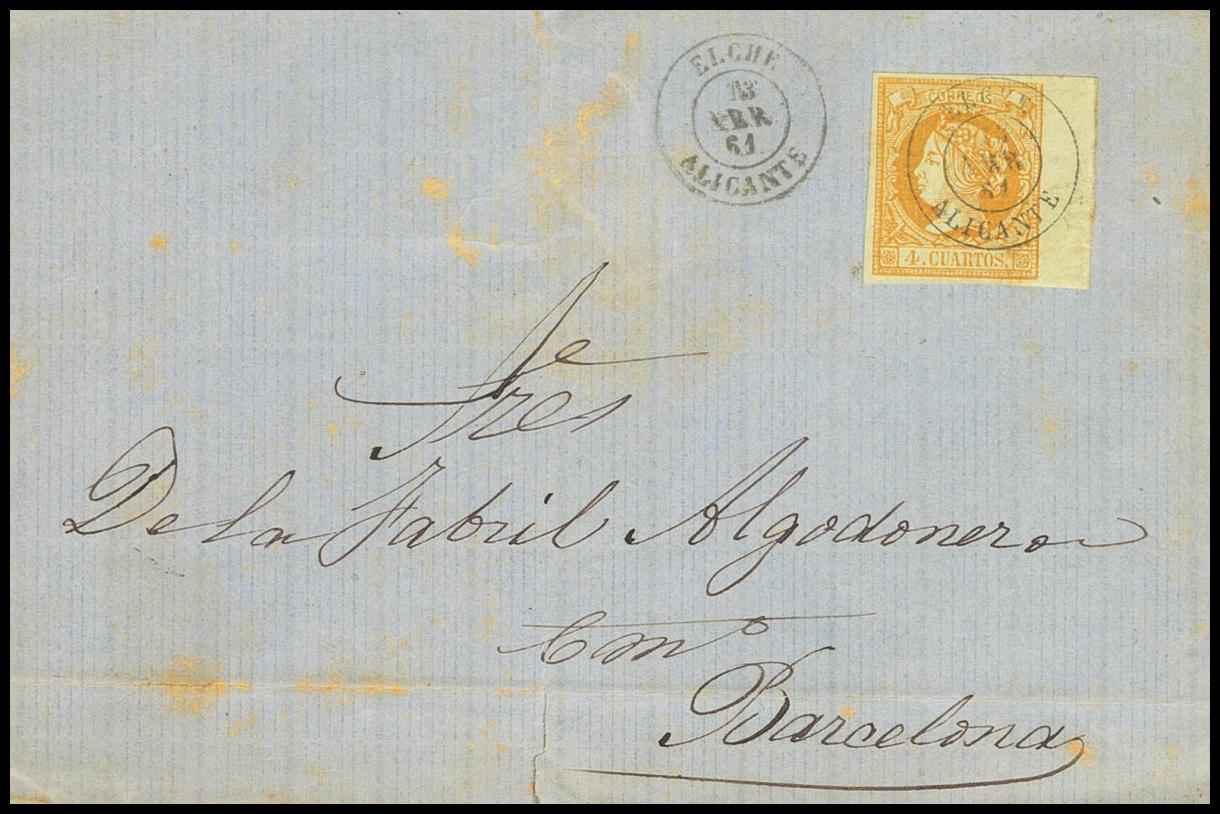 ELCHE
13
ABR
61
ALICANTE
CORREOS
ABR
61
ALICANTE
4. CUARTOS.
Sres
De la Fabril Algodonera
en
Barcelona